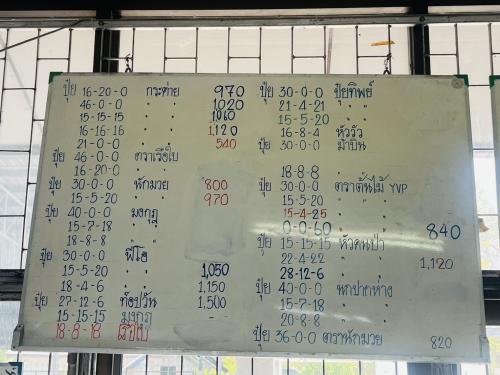 ปุ๋ย 16-20-0 กระต่าย 970
46-0-0 " " 1020
15-15-15 " " 1,060
16-16-16 " " 1,120
21-0-0 " " 540
ปุ๋ย 46-0-0 ตราเรือใบ
16-20-0 "
ปุ๋ย 30-0-0 นักมวย 800
15-5-20 " 970
ปุ๋ย 40-0-0 มงกุฎ
15-7-18 "
18-8-8 "
ปุ๋ย 30-0-0 พีโอ
15-5-20 " 1,050
18-4-6 " 1,150
ปุ๋ย 27-12-6 ท๊อปวัน 1,500
15-15-15 มงกุฎ -
18-8-18 เรือใบ
ปุ๋ย 30-0-0 ปุ๋ยทิพย์
21-4-21 " "
15-5-20 " "
16-8-4 หัววัว
ปุ๋ย 30-0-0 ม้าบิน
18-8-8 "
ปุ๋ย 30-0-0 ตราต้นไม้ YVP
15-5-20 " "
15-4-25 " "
0-0-60 " " 840
ปุ๋ย 15-15-15 หัวคนป่า
22-4-22 " 1,120
28-12-6 "
ปุ๋ย 40-0-0 นกปากห่าง
15-7-18 "
20-8-8 "
ปุ๋ย 36-0-0 ตรานักมวย 820